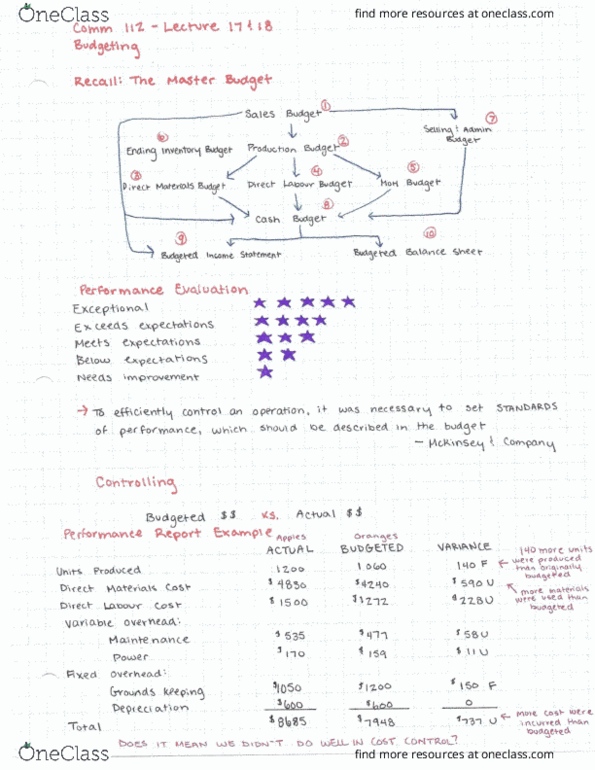 OneClass
find more resources at oneclass.com
Comm 112 - Lecture 17 & 18
Budgeting
Recall: The Master Budget
Sales Budget ①
Selling & Admin Budget ⑦
⑥
Ending Inventory Budget
Production Budget ②
③
Direct Materials Budget
④
Direct Labour Budget
⑤
MOH Budget
⑧
Cash Budget
⑨
Budgeted Income Statement
⑩
Budgeted Balance Sheet
Performance Evaluation
Exceptional ★ ★ ★ ★ ★
Exceeds expectations ★ ★ ★ ★
Meets expectations ★ ★ ★
Below expectations ★ ★
Needs improvement ★
→ To efficiently control an operation, it was necessary to set STANDARDS
of performance, which should be described in the budget
- McKinsey & Company
Controlling
Budgeted $$ vs. Actual $$
Performance Report Example
Apples Oranges
ACTUAL BUDGETED VARIANCE
Units Produced 1200 1060 140 F
140 more units
were produced
than originally
budgeted
Direct Materials Cost $4830 $4240 $590 U
more materials
were used than
budgeted
Direct Labour Cost $1500 $1272 $228 U
Variable overhead:
Maintenance $535 $477 $58 U
Power $170 $159 $11 U
Fixed Overhead:
Grounds keeping $1050 $1200 $150 F
Depreciation $600 $600 0
Total $8685 $7948 $737 U
more cost were
incurred than
budgeted
DOES IT MEAN WE DIDN'T DO WELL IN COST CONTROL?
OneClass
find more resources at oneclass.com